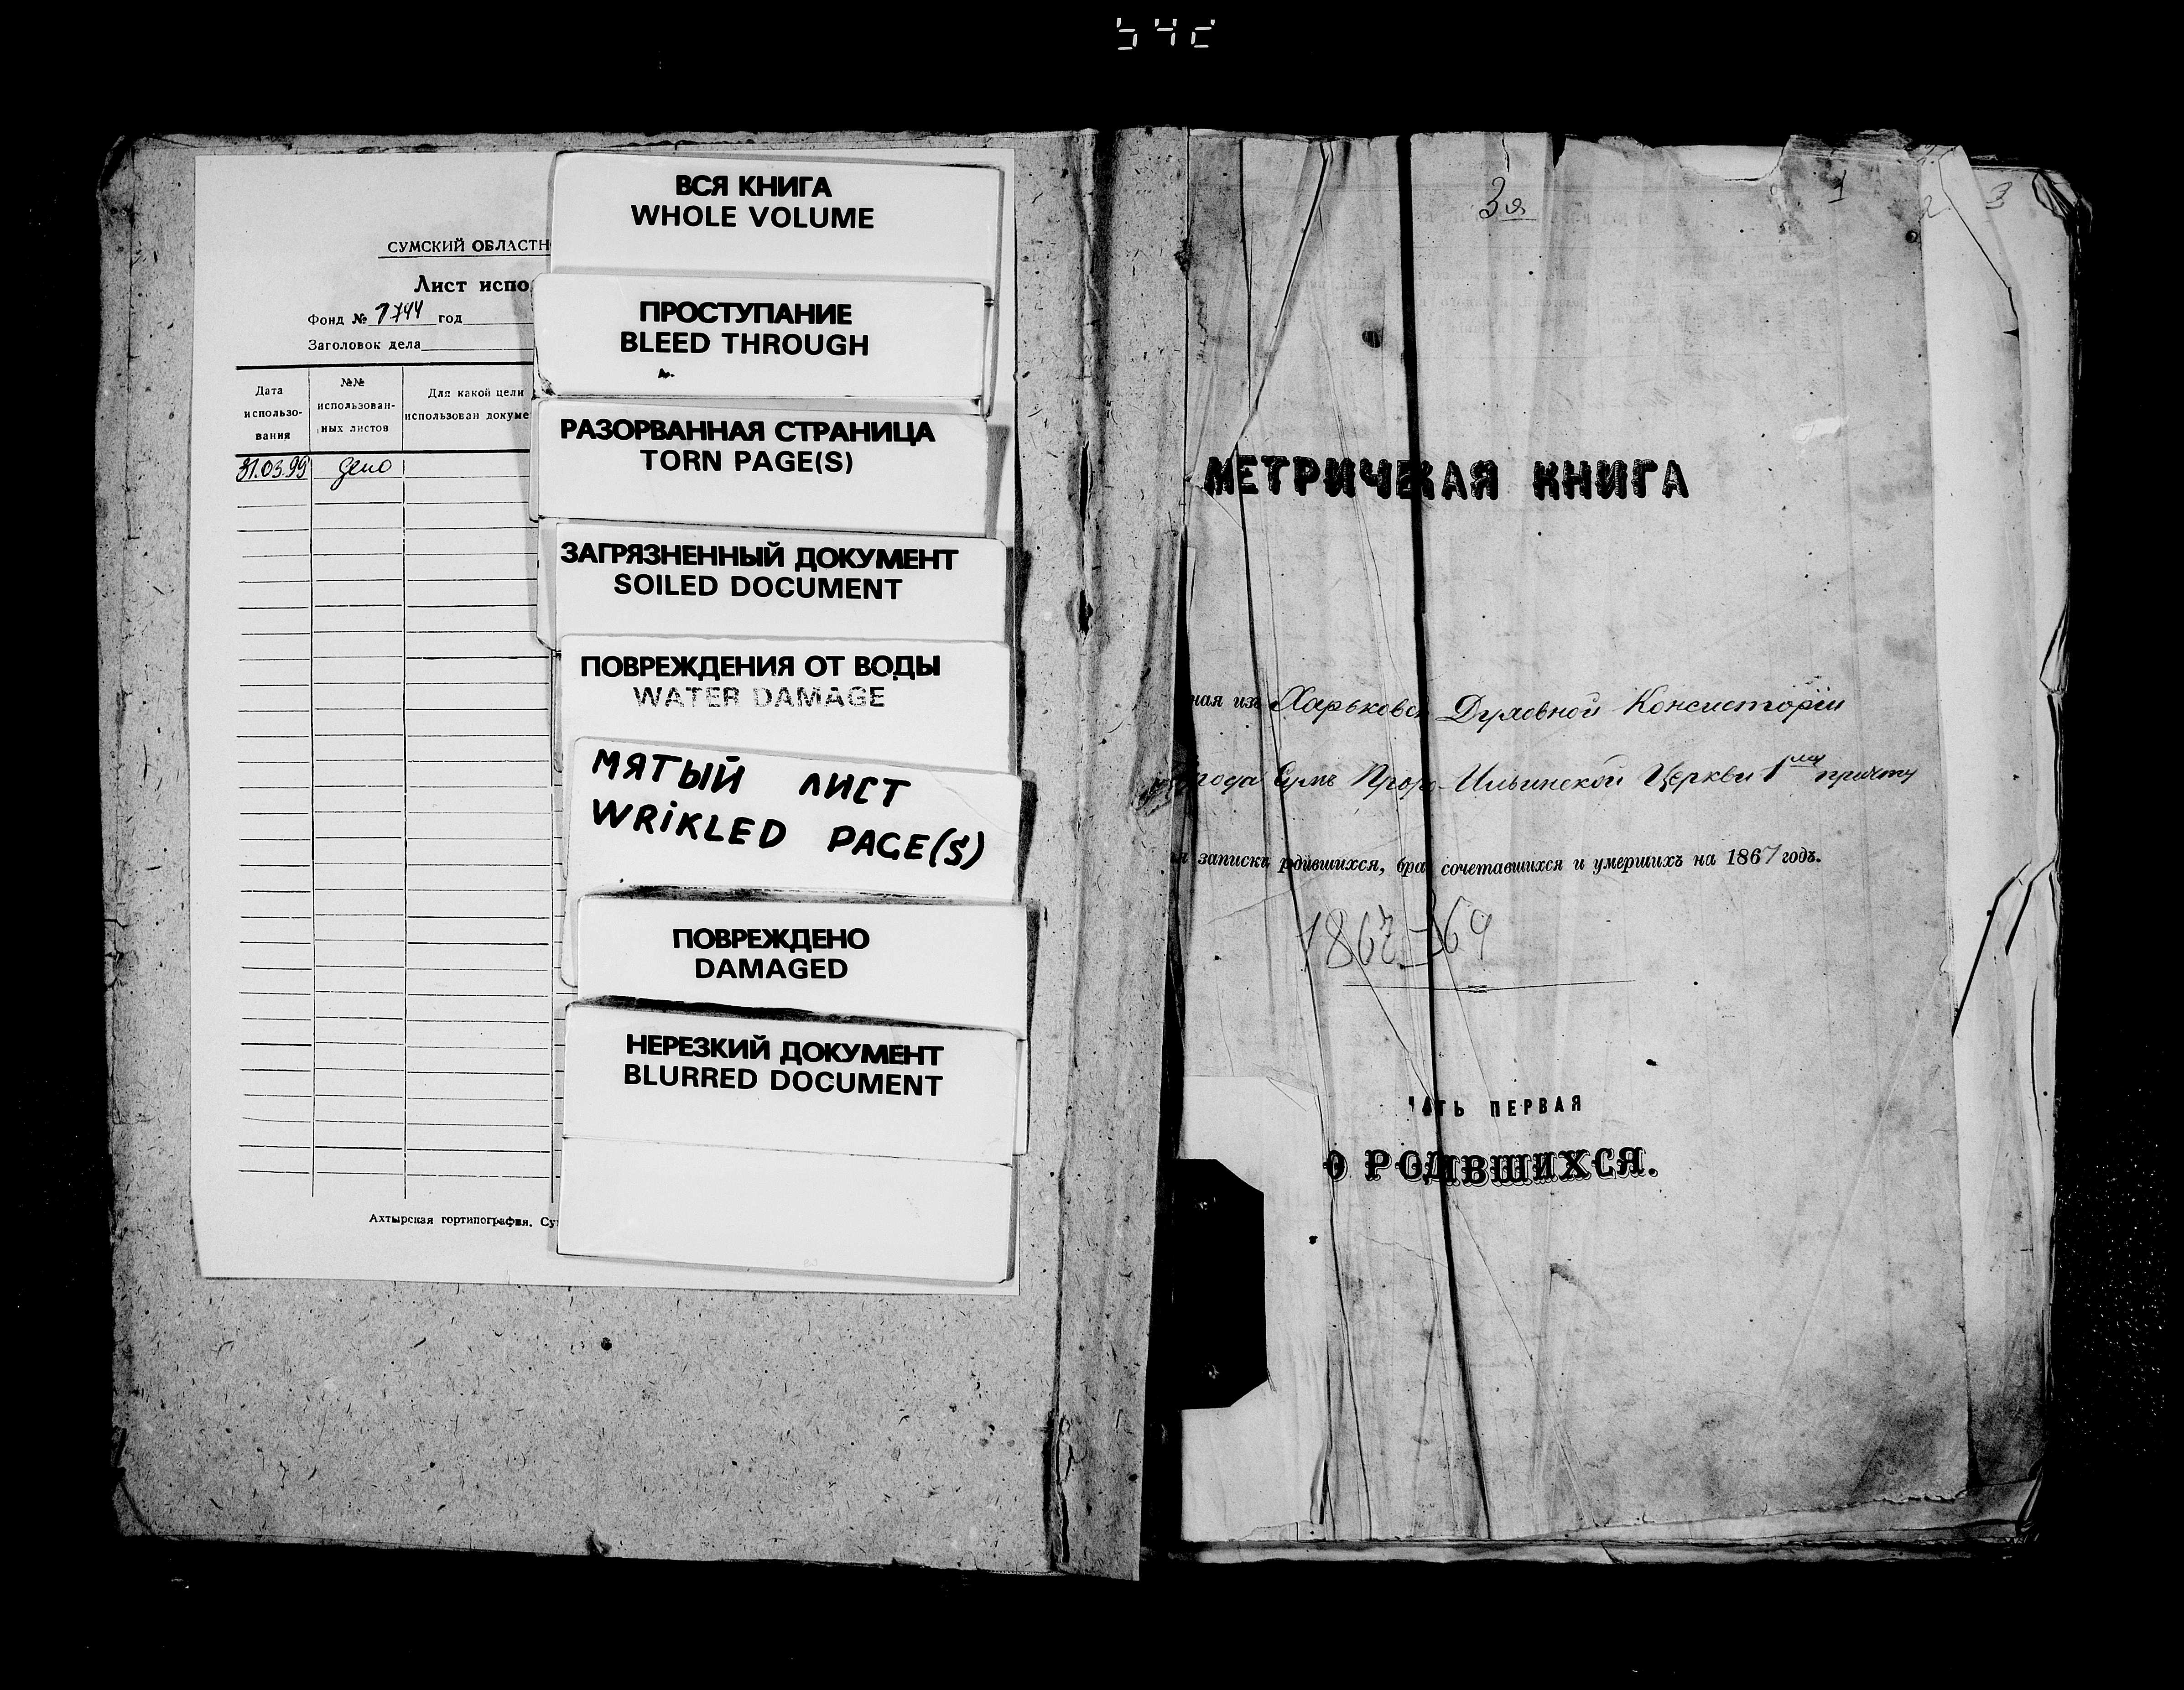 СУМСКИЙ ОБЛАСТН
Лист испо
Фонд № 1744 год
Заголовок дела
Дата использо-вания
№№ использован-ных листов
Для какой цели использован докуме
31.03.99 дело
Ахтырская гортипография. Су
ВСЯ КНИГА
WHOLE VOLUME
ПРОСТУПАНИЕ
BLEED THROUGH
РАЗОРВАННАЯ СТРАНИЦА
TORN PAGE(S)
ЗАГРЯЗНЕННЫЙ ДОКУМЕНТ
SOILED DOCUMENT
ПОВРЕЖДЕНИЯ ОТ ВОДЫ
WATER DAMAGE
МЯТЫЙ ЛИСТ
WRIKLED PAGE(S)
ПОВРЕЖДЕНО
DAMAGED
НЕРЕЗКИЙ ДОКУМЕНТ
BLURRED DOCUMENT
3я 1 2 3
МЕТРИЧЕКАЯ КНИГА
ная изъ Харьковск Духовной Консисторіи
города Сумъ Проро Ильинской Церкви 1му причту
я записки родившихся, бра сочетавшихся и умершихъ на 1867 годъ.
1867-69
АТЬ ПЕРВАЯ
О РОДИВШИХСЯ.